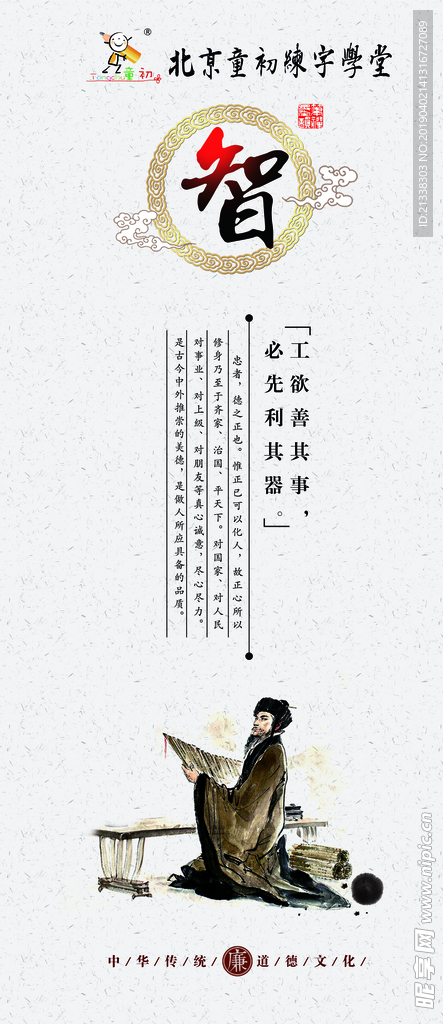 北京童初練字學堂
Tongchu童初
®
智
「工欲善其事，
必先利其器。」
忠者，德之正也。惟正己可以化人，故正心所以
修身乃至于齐家、治国、平天下。对国家、对人民
对事业、对上级、对朋友等真心诚意，尽心尽力。
是古今中外推崇的美德，是做人所应具备的品质。
中/华/传/统/廉/道/德/文/化/
ID:21338303 NO:20190402141316727089
昵图网 www.nipic.cn